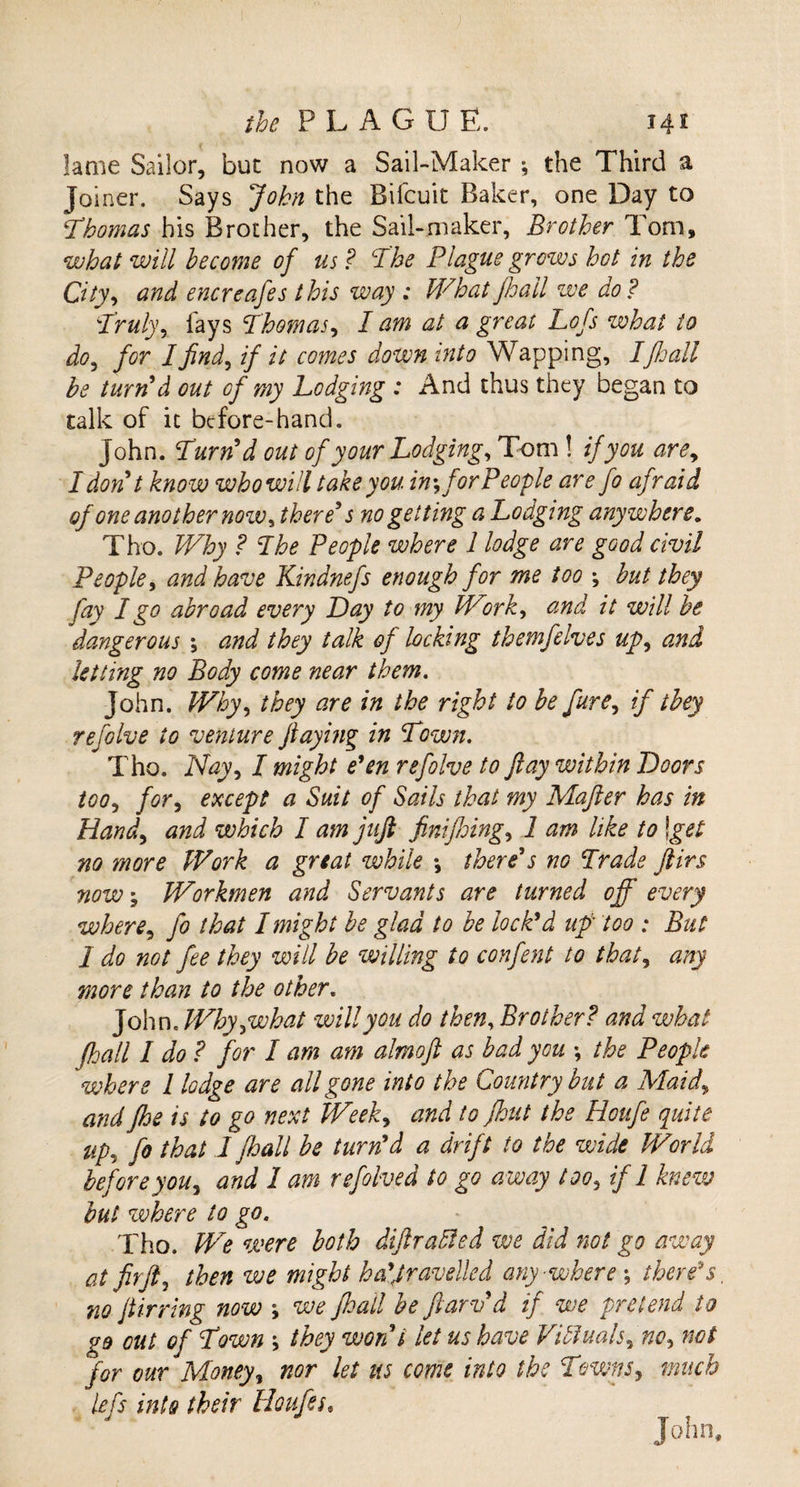 the PLAGUE. 141
lame Sailor, but now a Sail-Maker ; the Third a
Joiner. Says John the Biſcuit Baker, one Day to
Thomas his Brother, the Sail-maker, Brother Tom,
what will become of us ? The Plague grows hot in the
City, and encreaſes this way : What ſhall we do ?
Truly, ſays Thomas, I am at a great Loſs what to
do, for I find, if it comes down into Wapping, I ſhall
be turn'd out of my Lodging : And thus they began to
talk of it before-hand.
John. Turn'd out of your Lodging, Tom ! if you are,
I don't know who will take you in; for People are ſo afraid
of one another now, there's no getting a Lodging anywhere.
Tho. Why ? The People where I lodge are good civil
People, and have Kindneſs enough for me too ; but they
ſay I go abroad every Day to my Work, and it will be
dangerous ; and they talk of locking themſelves up, and
letting no Body come near them.
John. Why, they are in the right to be ſure, if they
reſolve to venture ſtaying in Town.
Tho. Nay, I might e'en reſolve to ſtay within Doors
too, for, except a Suit of Sails that my Maſter has in
Hand, and which I am juſt finiſhing, I am like to get
no more Work a great while ; there's no Trade ſtirs
now ; Workmen and Servants are turned off every
where, ſo that I might be glad to be lock'd up too : But
I do not ſee they will be willing to conſent to that, any
more than to the other.
John. Why, what will you do then, Brother? and what
ſhall I do ? for I am am almoſt as bad you ; the People
where I lodge are all gone into the Country but a Maid,
and ſhe is to go next Week, and to ſhut the Houſe quite
up, ſo that I ſhall be turn'd a drift to the wide World
before you, and I am reſolved to go away too, if I knew
but where to go.
Tho. We were both diſtracted we did not go away
at firſt, then we might ha' travelled any where ; there's
no ſtirring now ; we ſhall be ſtarv'd if we pretend to
go out of Town ; they won't let us have Victuals, no, not
for our Money, nor let us come into the Towns, much
leſs into their Houſes.
John,